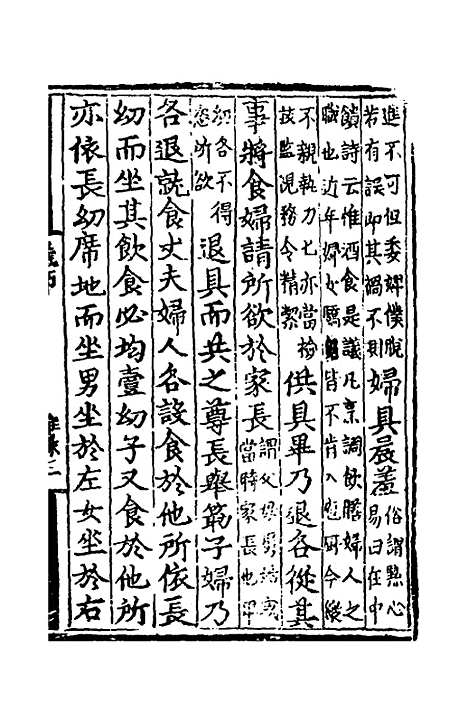 進不可但委婢僕脫
若有誤即其禍不則
婦具晨羞
俗謂點心
易曰在中
饋詩云惟酒食是議凡烹調飲膳婦人之
職也近年婦女驕倨皆不肯入庖厨今縱
不親執刀匕亦當檢
技監視務令精潔
供具畢乃退各從其
事將食婦請所欲於家長
謂父母舅姑或
當時家長也卑
幼各不得
恣所欲
退具而共之尊長舉筯子婦乃
各退就食丈夫婦人各設食於他所依長
幼而坐其飲食必均壹幼子又食於他所
亦依長幼席地而坐男坐於左女坐於右